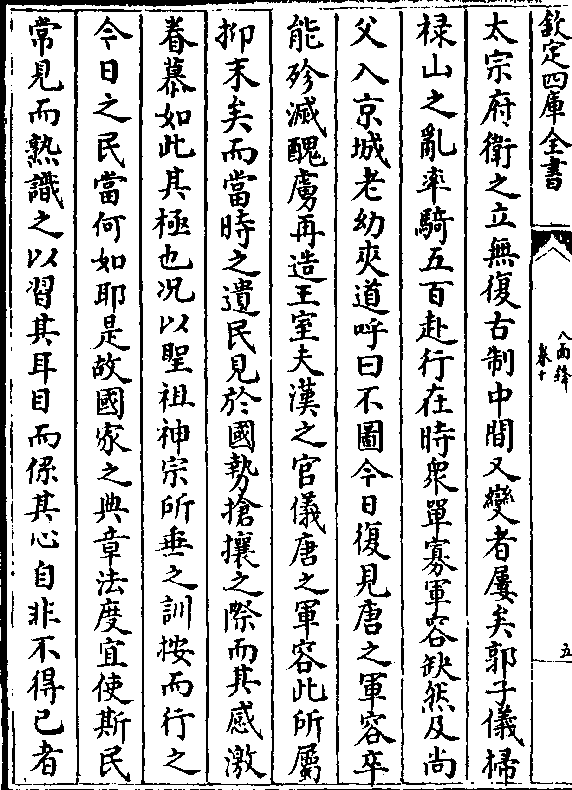 欽定四庫全書
八面鋒
卷十
五
太宗府衛之立無復古制中間又變者屢矣郭子儀掃
祿山之亂率騎五百赴行在時衆單寡軍容缺然及尚
父入京城老幼夾道呼曰不圖今日復見唐之軍容卒
能殄滅醜虜再造王室夫漢之官儀唐之軍容此所屬
抑末矣而當時之遺民見於國勢搶攘之際而其感激
眷慕如此其極也况以聖祖神宗所垂之訓按而行之
今日之民當何如耶是故國家之典章法度宜使斯民
常見而熟識之以習其耳目而係其心自非不得已者